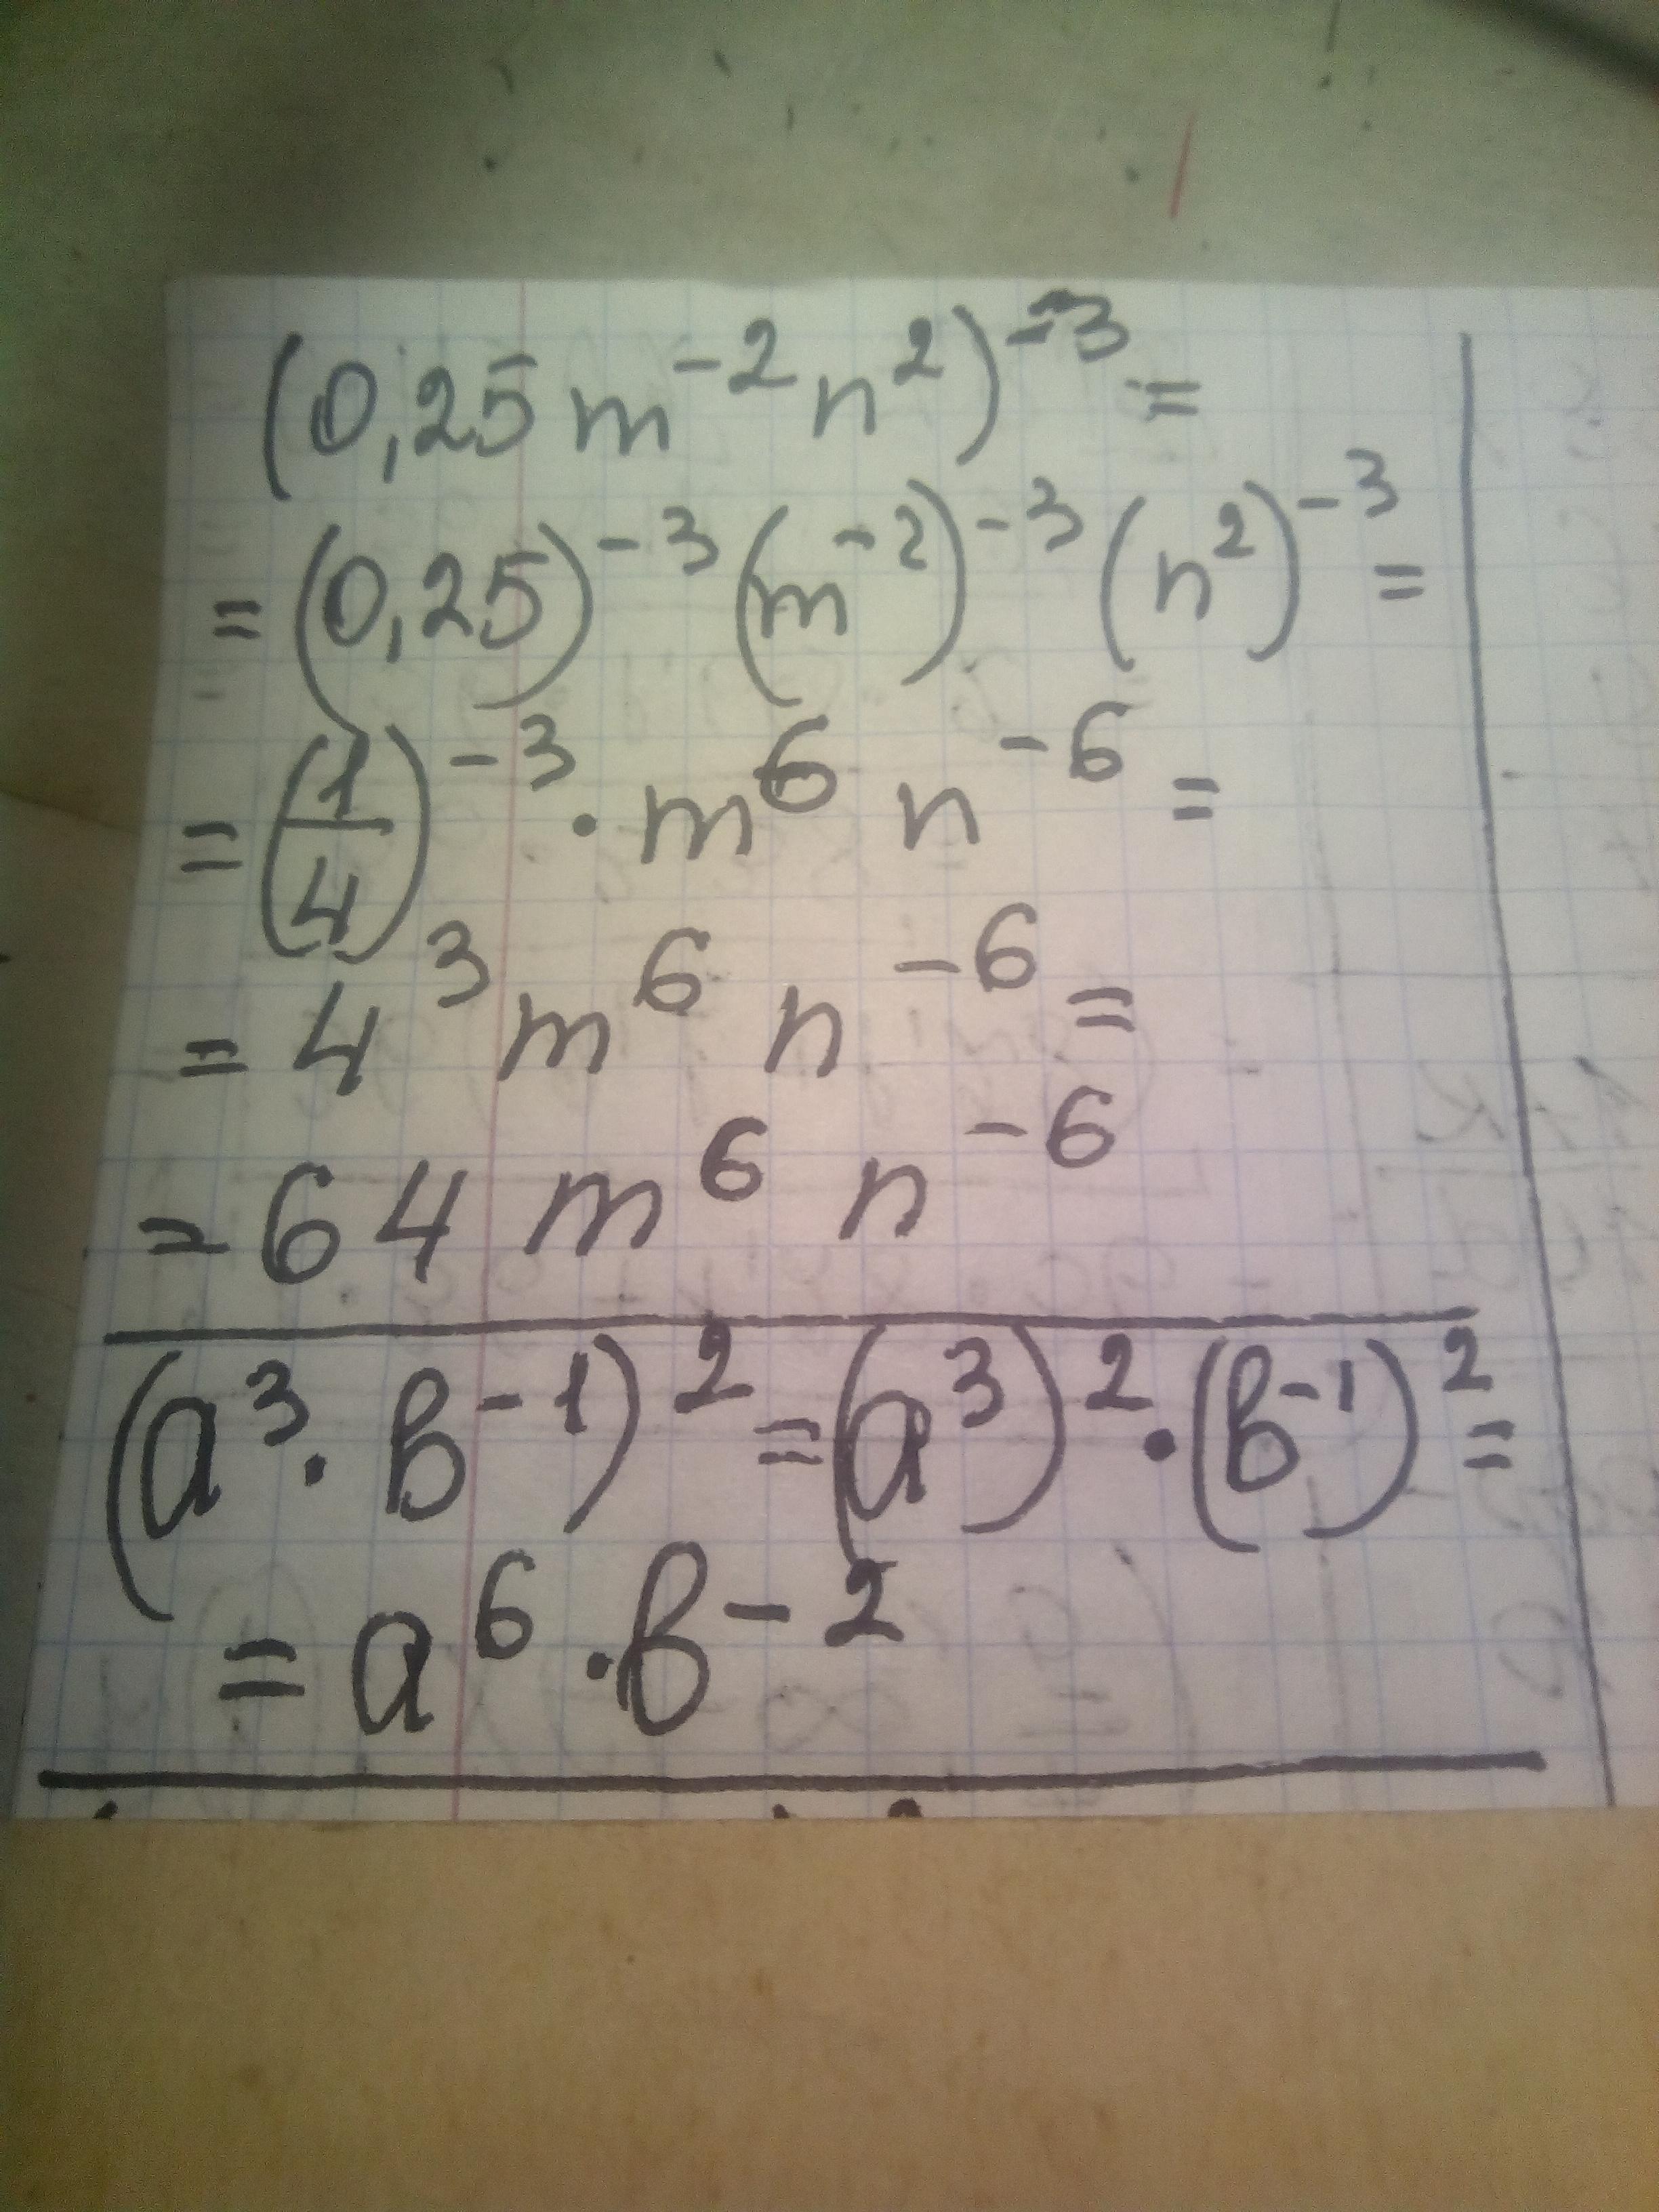 (0,25 m⁻² n²)⁻³ =
= (0,25)⁻³ (m⁻²)⁻³ (n²)⁻³ =
= (1/4)⁻³ · m⁶ n⁻⁶ =
= 4³ m⁶ n⁻⁶ =
= 64 m⁶ n⁻⁶
(a³ · b⁻¹)² = (a³)² · (b⁻¹)² =
= a⁶ · b⁻²